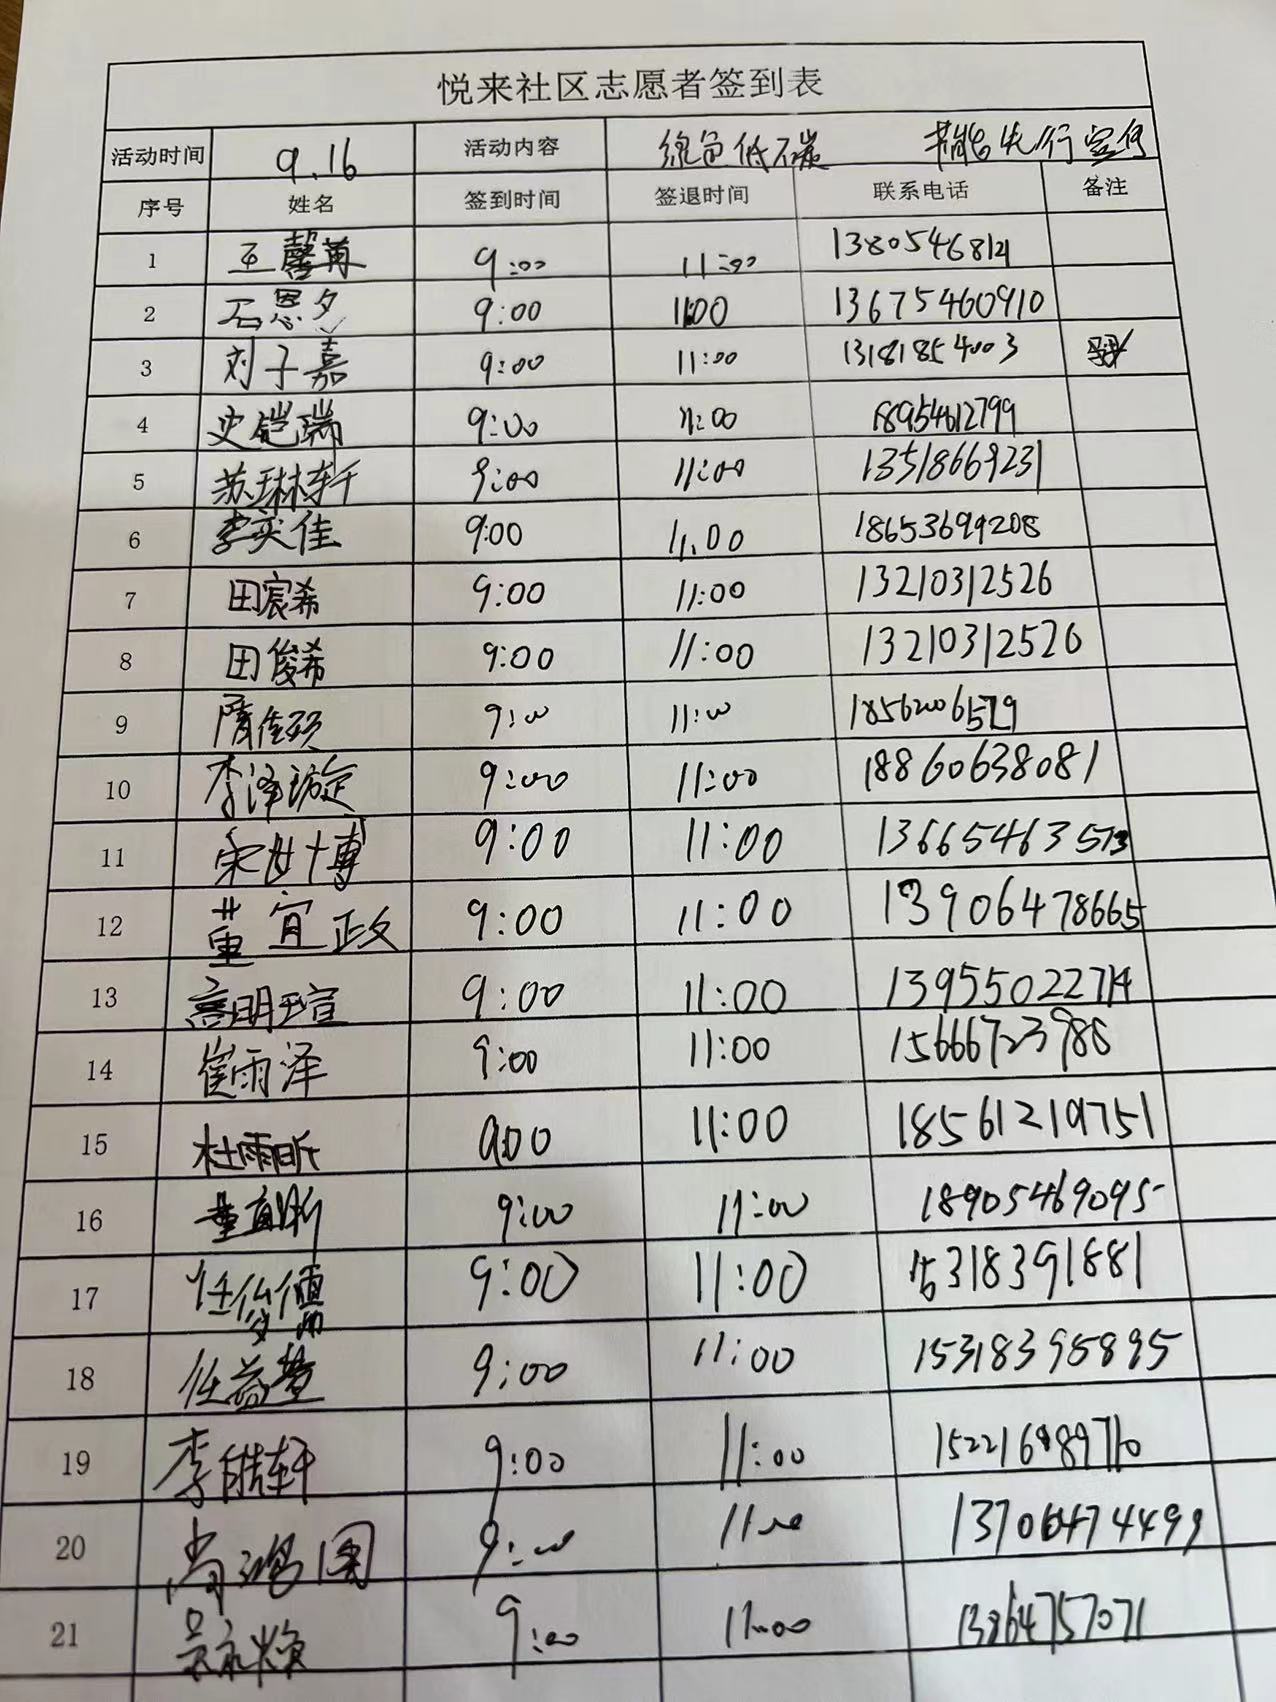 悦来社区志愿者签到表
活动时间 9.16 活动内容 绿色低碳 节能先行宣传
序号 姓名 签到时间 签退时间 联系电话 备注
1 王馨苒 9:00 11:00 13805468121
2 石恩夕 9:00 11:00 13675460910
3 刘子嘉 9:00 11:00 13181854003
4 史铠瑞 9:00 11:00 18954612799
5 苏琳轩 9:00 11:00 13518669231
6 李奕佳 9:00 11.00 18653699208
7 田宸希 9:00 11:00 13210312526
8 田俊希 9:00 11:00 13210312526
9 隋佳硕 9:00 11:00 18562006579
10 李泽璇 9:00 11:00 18860638081
11 宋世博 9:00 11:00 13665463573
12 董宜政 9:00 11:00 13906478665
13 高明瑄 9:00 11:00 13955022714
14 崔雨泽 9:00 11:00 15666723988
15 杜雨昕 9:00 11:00 18561219751
16 董宜昕 9:00 11:00 18905469095
17 任 9:00 11:00 15318391881
18 任益萱 9:00 11:00 15318395895
19 李皓轩 9:00 11:00 15221689710
20 尚鸿 9:00 11:00 13706474499
21 吴永焕 9:00 11:00 13864757071